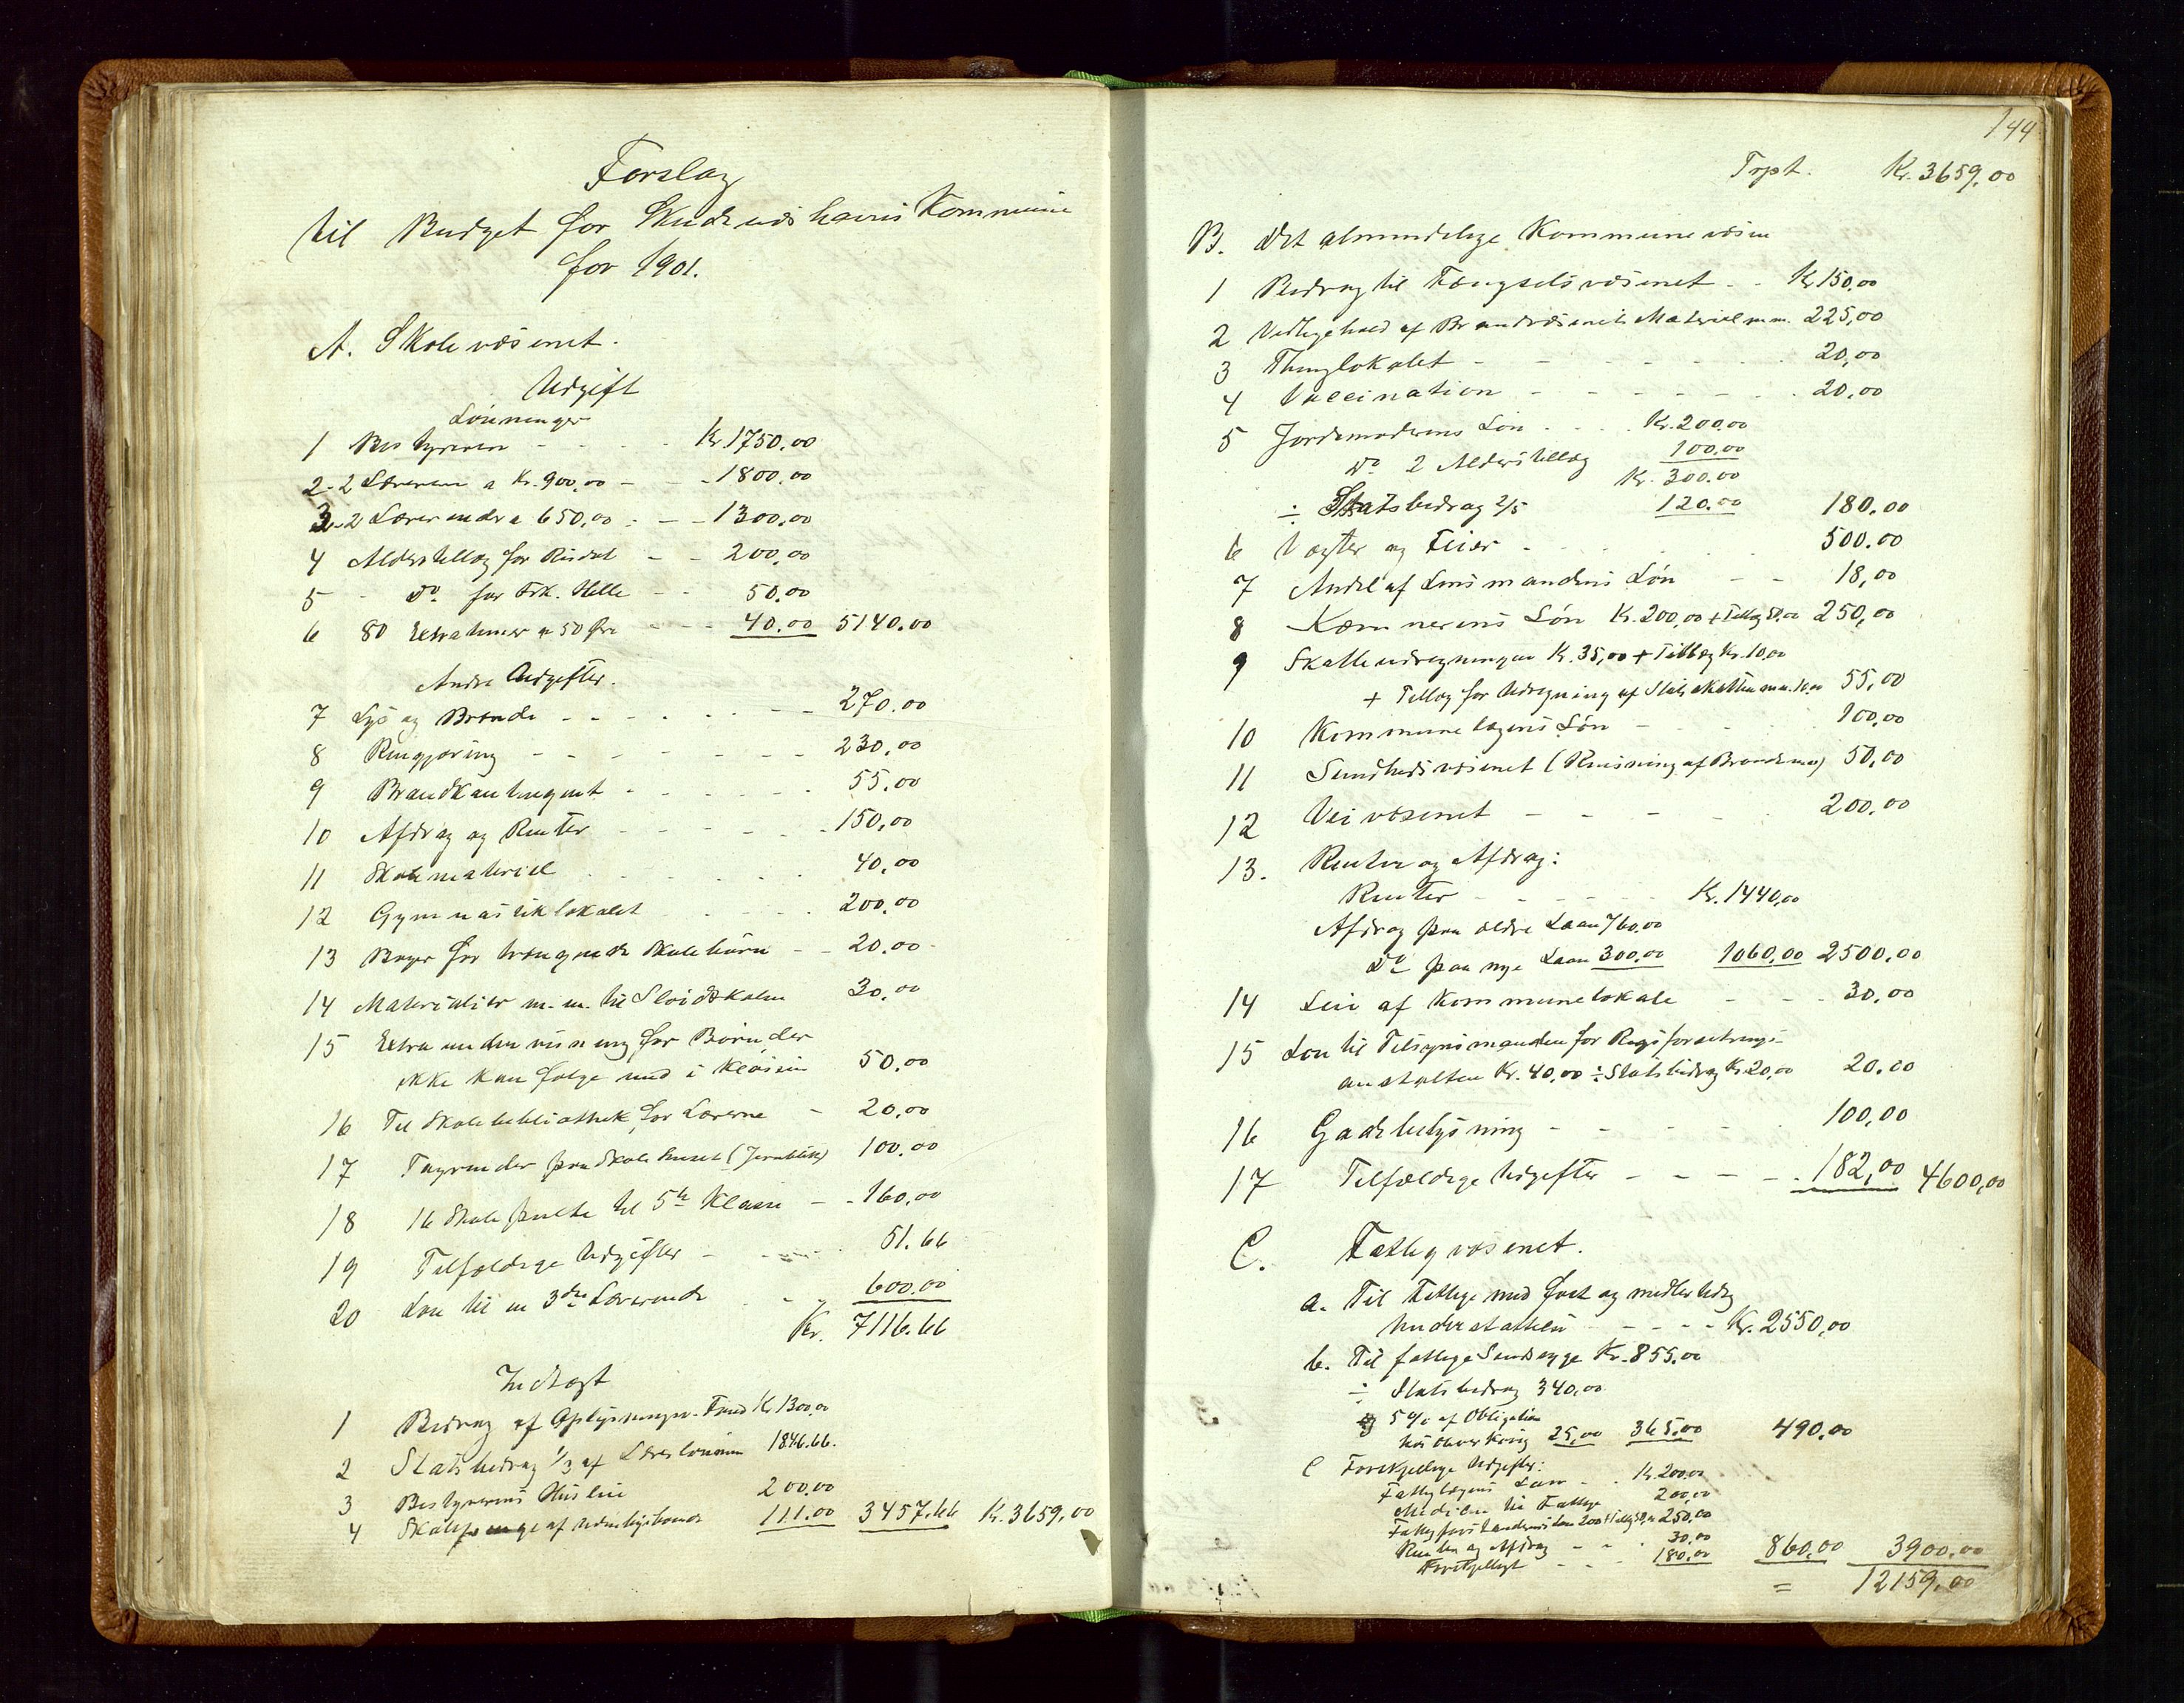 Forslag
til Budget for Skudesneshavns Kommune
for 1901.
A. Skolevæsenet.
Udgift
Lønninger
1 Bestyreren - - - Kr. 1750.00
2 - 2 Lærerne a Kr. 900,00 - - 1800.00
3 - 2 Lærerinder a 650,00 - - 1300.00
4 Alderstillæg for Risdal - - 200.00
5 - Do. for Frk. Helle - - 50.00
6 80 Extratimer a 50 Øre - - - 40.00 5140.00
Andre Udgifter.
7 Lys og Brænde - - - - - 270.00
8 Rengjøring - - - - - 230.00
9 Brandkontingent - - - - 55.00
10 Afdrag og Renter - - - - 150,00
11 Skolemateriel - - - - 40.00
12 Gymnastiklokalet - - - 200.00
13 Bøger for trængende Skolebørn - - 20.00
14 Materialier m.m. til Sløidskolen 30.00
15 Extraundervisning for Børn, der
ikke kan følge med i Klassen 50.00
16 Til Skolebibliothek for Lærerne - 20.00
17 Tagrender paa Skolehuset (Jernblik) 100.00
18 16 Skolepulte til 5te Klasse - - 160.00
19 Tilfældige Udgifter - - - 51.66
20 Løn til en 3die Lærerinde - - 600.00
Kr. 7116.66
Indtægt
1 Bidrag af Oplysningsv. Fond Kr. 1300,00
2 Statsbidrag 1/3 af Lærerlønnen 1846.66.
3 Bestyrerens Husleie 200.00
4 Skolepenge af Udenbysboende 111.00 3457.66 Kr. 3659,00
144
Trpt. Kr. 3659,00
B. Det almindelige Kommunevæsen
1 Bidrag til Fængselsvæsenet - - Kr 150,00
2 Vedligehold af Brandvæsenets Materiel m.m. 225,00
3 Thinglokalet - - - - 20,00
4 Vaccination - - - - - 20.00
5 Jordemoderens Løn - - - Kr. 200.00
Do 2 Alderstillæg 100.00
Kr. 300.00
÷ Statsbidrag 2/5 120.00 180.00
6 Vægter og Feier - - - 500.00
7 Andel af Lensmandens Løn - - 18,00
8 Kæmnerens Løn Kr. 200,00 + Tillæg 50.00 250,00
9 Skatteudregningen Kr. 35,00 + Tillæg Kr. 10.00
+ Tillæg for Udregning af Statsskatten m.m. 10.00 55,00
10 Kommunelægens Løn - - 100,00
11 Sundhedsvæsenet (Rensning af Brøndene) 50,00
12 Veivæsenet - - - - 200.00
13. Renter og Afdrag:
Renter - - - - Kr. 1440,00
Afdrag paa ældre Laan 760.00
Do paa nye Laan 300.00 1060.00 2500.00
14 Leie af Kommunelokale - - - 30.00
15 Løn til Tilsynsmanden for Rugeforsætnings-
anstalten Kr. 40,00 ÷ Statsbidrag Kr. 20,00 20.00
16 Gadebelysning - - - - 100,00
17 Tilfældige Udgifter - - - - 182,00 4600,00
C. Fattigvæsenet.
a. Til Fattige med fast og midlertidig
Understøttelse - - - - Kr. 2550,00
b. Til fattige Sindssyge Kr. 855.00
÷ Statsbidrag 340,00
5 % af Obligation
hos Oluer Kvig 25,00 365.00 490.00
C Forskjellige Udgifter:
Fattiglægens Løn - - Kr. 200.00
Medicin til Fattige 200,00
Fattigforstanderens Løn 200 + Tillæg 50,00 250.00
Renter og Afdrag - - - 30.00
Forskjelligt - - - 180.00 860.00 3900.00
= 12159,00